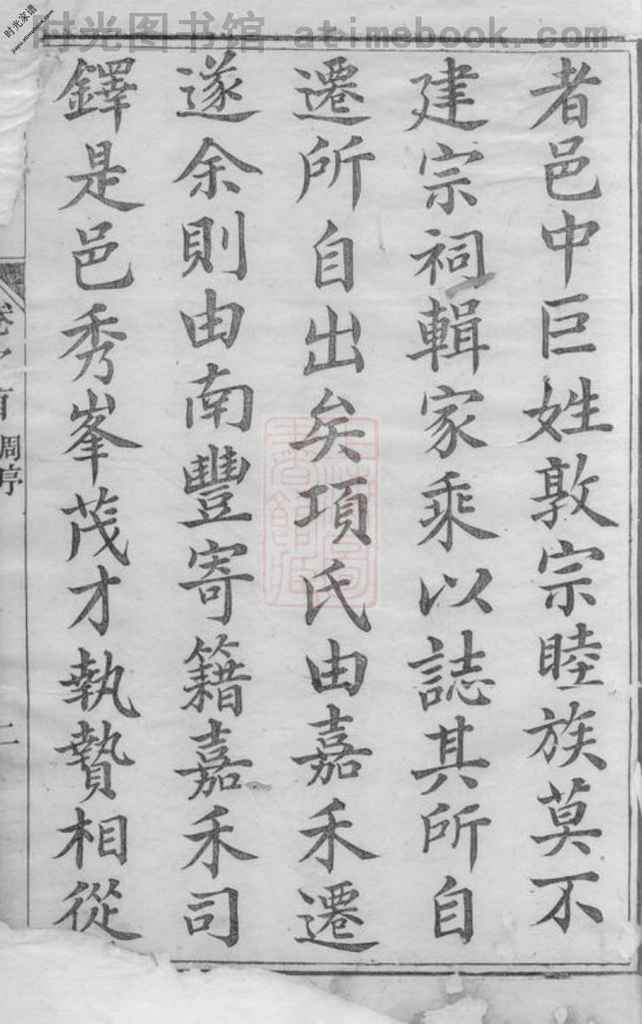 时光图书馆 atimebook.com
时光家谱
者邑中巨姓敦宗睦族莫不
建宗祠輯家乘以誌其所自
遷所自出矣項氏由嘉禾遷
遂余則由南豐寄籍嘉禾司
鐸是邑秀峯茂才執贄相從